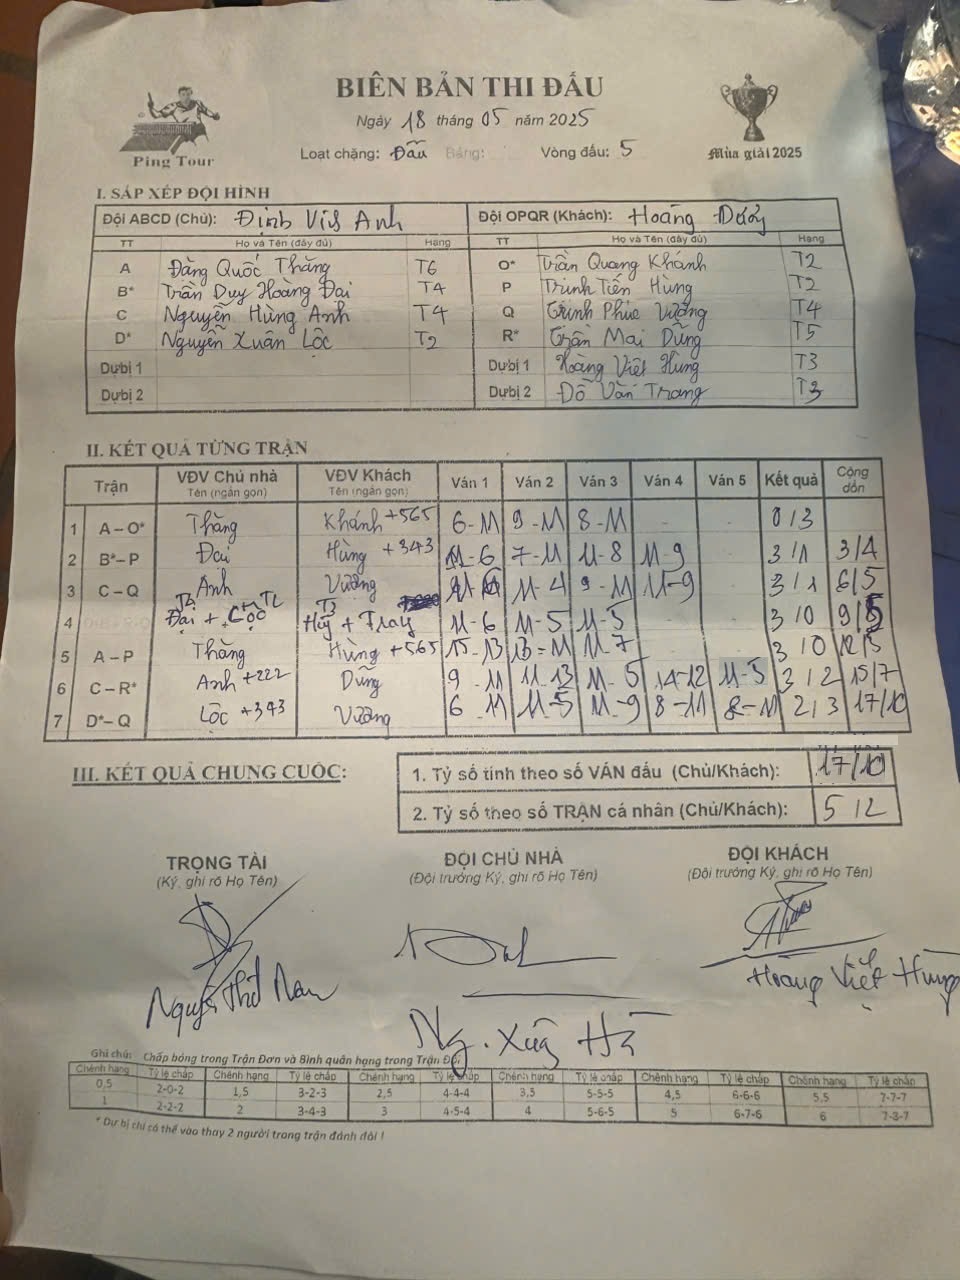 BIÊN BẢN THI ĐẤU
Ngày 18 tháng 05 năm 2025
Ping Tour
Loạt chặng: Đấu Bảng: Vòng đấu: 5
Mùa giải 2025
I. SẮP XẾP ĐỘI HÌNH
Đội ABCD (Chủ): Định Việt Anh Đội OPQR (Khách): Hoàng
TT Họ và Tên (đầy đủ) Hạng TT Họ và Tên (đầy đủ) Hạng
A Đặng Quốc Thắng T6 O* Trần Quang Khánh T2
B* Trần Duy Hoàng Đại T4 P Trịnh Tiến Hùng T2
C Nguyễn Hùng Anh T4 Q Trịnh Phúc Vượng T4
D* Nguyễn Xuân Lộc T2 R* Trần Mai Dũng T5
Dự bị 1 Dự bị 1 Hoàng Việt Hùng T3
Dự bị 2 Dự bị 2 Đỗ Văn Trang T3
II. KẾT QUẢ TỪNG TRẬN
Trận VĐV Chủ nhà Tên (ngắn gọn) VĐV Khách Tên (ngắn gọn) Ván 1 Ván 2 Ván 3 Ván 4 Ván 5 Kết quả Cộng dồn
1 A – O* Thắng Khánh +565 6-11 9-11 8-11 - - 0/3
2 B* – P Đại Hùng +343 11-6 7-11 11-8 11-9 - 3/1 3/4
3 C – Q Anh Vượng 11-4 9-11 11-9 - 3/1 6/5
4 Đại + Lộc T2 T3 + Trang 11-6 11-5 11-5 - - 3/0 9/5
5 A – P Thắng Hùng +565 15-13 13-11 11-7 - - 3/0 12/5
6 C – R* Anh +222 Dũng 9-11 11-13 11-5 14-12 11-5 3/2 15/7
7 D* – Q Lộc +343 Vượng 6-11 11-5 11-9 8-11 8-11 2/3 17/10
III. KẾT QUẢ CHUNG CUỘC:
1. Tỷ số tính theo số VÁN đấu (Chủ/Khách): 17/10
2. Tỷ số theo số TRẬN cá nhân (Chủ/Khách): 5/2
TRỌNG TÀI ĐỘI CHỦ NHÀ ĐỘI KHÁCH
(Ký, ghi rõ Họ Tên) (Đội trưởng Ký, ghi rõ Họ Tên) (Đội trưởng Ký, ghi rõ Họ Tên)
Hoàng Việt Hùng
Ng. Xuân Hà
Ghi chú: Chấp bóng trong Trận Đơn và Bình quân hạng trong Trận Đôi
Chênh hạng Tỷ lệ chấp Chênh hạng Tỷ lệ chấp Chênh hạng Tỷ lệ chấp Chênh hạng Tỷ lệ chấp Chênh hạng Tỷ lệ chấp Chênh hạng Tỷ lệ chấp
0,5 2-0-2 1,5 3-2-3 2,5 4-4-4 3,5 5-5-5 4,5 6-6-6 5,5 7-7-7
1 2-2-2 2 3-4-3 3 4-5-4 4 5-6-5 5 6-7-6 6 7-3-7
* Dự bị chỉ có thể vào thay 2 người trong trận đánh đôi !